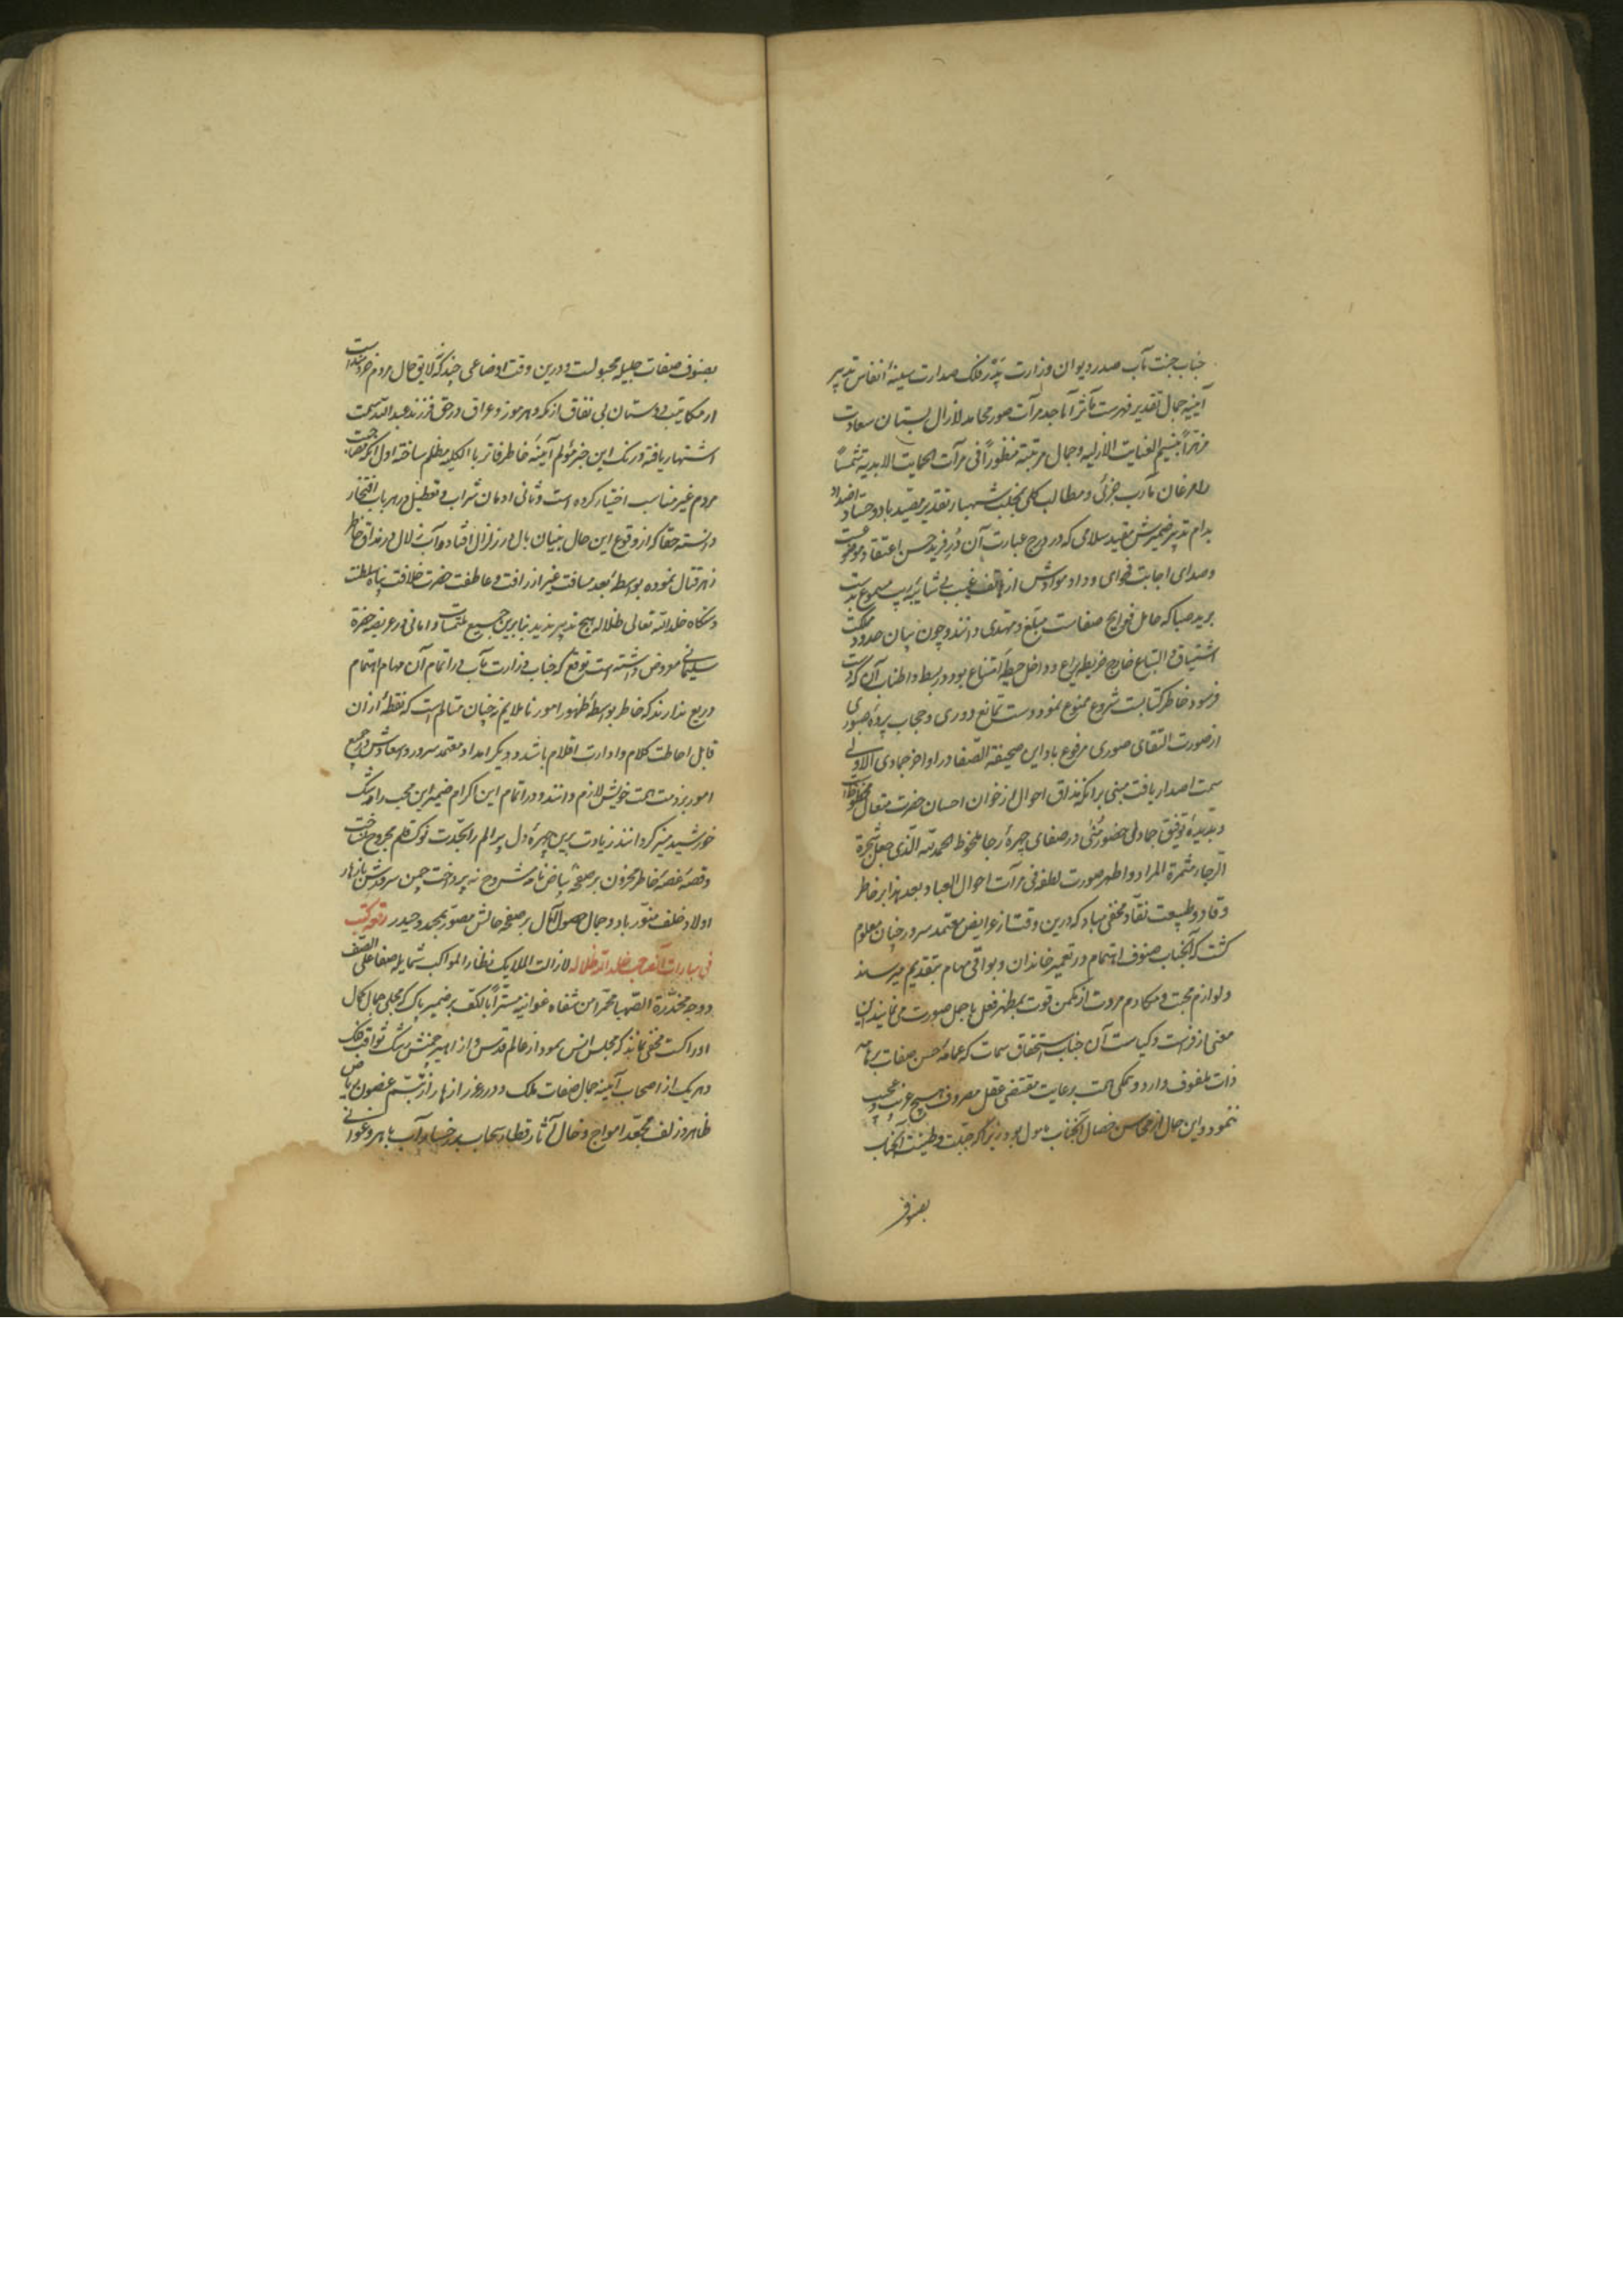 جناب جنت مآب صدر دیوان وزارت بدر فلک صدارت سفینهٔ انفاس تدبیر
آیینه جمال تقدیر فهرست مآثر آبا جد مرآت صور محامد لازال بستان سعادت
بنسیم العنایت الازلیه وجمال مرتبته منظوراً فی مرآت الحمایت الابدیه
مآرب جزئی و مطالب کلی بمخلب شهباز تقدیر مقید باد و حساد اضداد
بدام تدبیر ضمیرش مقید سلامی که در درج عبارت آن در فرید حسن اعتقاد موضوعست
وصدای اجابت فحوای وداد موادش از هاتف غیب بی شائبه ریب مسموع بدست
برید صبا که حامل فوایح صفاست مبلغ و مهدی دانند و چون بیان حدود مملکت
اشتیاق و التیاع خارج خریطه یراع و داخل حیطه امتناع بود در بسط و اطناب آن که دست
فرسود خاطر کتابست شروع ممنوع نمود دست تمانع دوری و حجاب پردهٔ صبوری
از صورت التقای صوری مرفوع باد این صحیفة الصفا در اواخر جمادی الاولی
سمت اصدار یافت مبنی بر آنکه مذاق احوال از خوان احسان حضرت متعال محظوظ است
و بدیدهٔ توفیق جمادی در صفای چهرهٔ رجا ملحوظ الحمد لله الذی جعل شجرة
الرجا مثمرة المراد واظهر صورت لطفه فی مرآت احوال العباد بعد هذا بر خاطر
وقاد و طبیعت نقاد مخفی مباد که درین وقت از عرایض معتمد سرور چنان معلوم
گشت که آنجناب صنوف اهتمام در تعمیر خاندان و بواقی مهام بتقدیم میرسانند
ولوازم محبت و مکارم مروت از مکمن قوت بمظهر فعل باجل صورت می نمایند این
معنی از فراست و کیاست آن جناب استحقاق سمات که عمامهٔ حسن صفات بر هامه
ذات ملفوف دارد و همگی همت برعایت مقتضی عقل مصروف هیچ غریب و عجیب
ننمود و این حال از محاسن خصال آنجناب مامول بود زیرا که جبلت و طینت آنجناب
بصنوف
بصنوف صفات جلیله مجبولست و درین وقت اوضاعی چند که لایق حال مردم خردمند است
از مکاتیب دوستان بی نفاق از مکه و هرموز و عراق در حق فرزند عبدالله سمت
اشتهار یافته و زنگ این خبر مؤلم آیینهٔ خاطر فاتر بالکلیه مظلم ساخته اول آنکه مصاحبت
مردم غیر مناسب اختیار کرده است و ثانی ادمان شراب و تعطیل در هر باب افتخار
دانسته حقا که از وقوع این حال بنیان بال در زلزال افتاد و آب زلال در مذاق خاطر
زهر قتال نموده بواسطهٔ بعد مسافت غیر از رأفت و عاطفت حضرت خلافت پناه سلطنت
دستگاه خلد الله تعالی ظلاله هیچ تدبیر ندید بنابرین جمیع ملتمسات و امانی در عریضه حضرة
سلیمانی معروض داشته است توقع که جناب وزارت مآب در اتمام آن مهام اهتمام
دریغ ندارند که خاطر بواسطهٔ ظهور امور ناملایم نه چنان متألم است که نقطهٔ از آن
قابل احاطت کلام و ادارت اقلام باشد و دیگر امداد معتمد سرور و اسعادش در جمیع
امور بر ذمت همت خویش لازم دانند و در اتمام این اکرام ضمیر این محب را رشک
خورشید منیر گردانند زیادت برین چهرهٔ دل پر الم را بحدت نوک قلم مجروح نساخت
وقصهٔ غصهٔ خاطر محزون بر صفحهٔ بیاض نامه مشروح نپرداخت چمن سرورش بازهار
اولاد خلف منور باد و جمال حصول آمال بر صفحه حالش مصور بمحمد و حیدر رقعه کتب
فی خلد الله ظلاله لازالت الملایک نظار المواکب شمایله صفا علی الصف
ووجه مخدرة الصهبا محمرا من شفاه غوانیه مسترا بالکف بر ضمیر پاک که مجلی جمال کمال
ادراکست مخفی نماند که مجلس انس نمودار عالم قدس و از اهیر چمنش رشک ثواقب فلک
وهر یک از اصحاب آیینه جمال صفات ملک و درر غرر ازهار از تبسم غصون ریاض
ظاهر و زلف مجعد امواج و خال آثار قطار سحاب بر رخسار آب باهر و غوانی